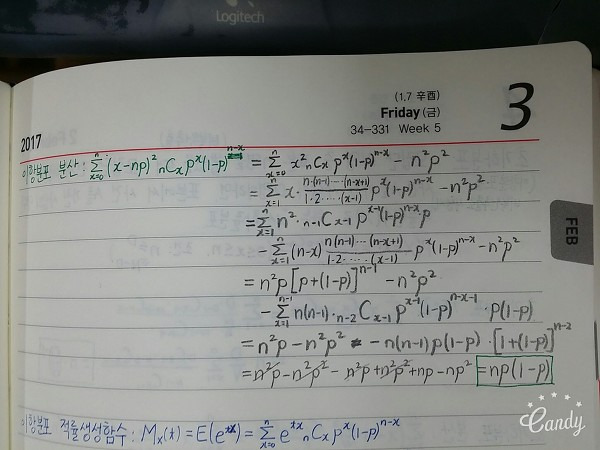 Logitech
(1.7 辛酉)
Friday (금) 3
34-331 Week 5
2017
이항분포 분산 : Σ_{x=0}^{n} (x-np)² ₙCₓ pˣ(1-p)^{n-x} = Σ_{x=0}^{n} x² ₙCₓ pˣ(1-p)^{n-x} - n²p²
= Σ_{x=1}^{n} x · \frac{n·(n-1)·····(n-x+1)}{1·2·····(x-1)} pˣ(1-p)^{n-x} - n²p²
= Σ_{x=1}^{n} n² · ₙ₋₁Cₓ₋₁ p^{x-1}(1-p)^{n-x} p
- Σ_{x=1}^{n} (n-x) \frac{n(n-1)···(n-x+1)}{1·2·····(x-1)} pˣ(1-p)^{n-x} - n²p²
= n²p[p+(1-p)]^{n-1} - n²p²
- Σ_{x=1}^{n-1} n(n-1) · ₙ₋₂Cₓ₋₁ p^{x-1}(1-p)^{n-x-1} · p(1-p)
= n²p - n²p² - n(n-1)p(1-p) · [1+(1-p)]^{n-2}
= n²p - n²p² - n²p + n²p² + np - np² = np(1-p)
FEB
이항분포 적률생성함수 : Mₓ(t) = E(e^{tx}) = Σ_{x=0}^{n} e^{tx} ₙCₓ pˣ(1-p)^{n-x}
Candy